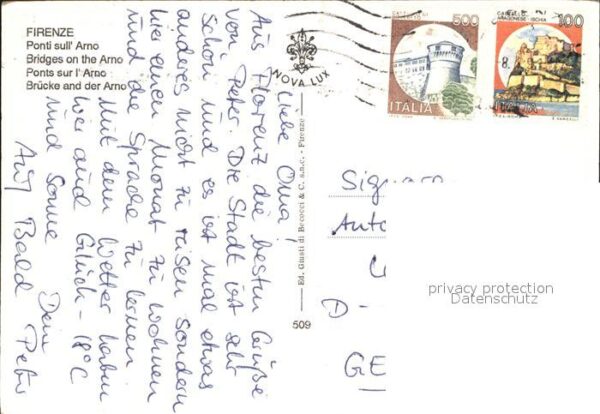 FIRENZE
Ponti sull' Arno
Bridges on the Arno
Ponts sur l' Arno
Brücke and der Arno
NOVA LUX
500
ITALIA
CASTELLO
ARAGONESE - ISCHIA
100
8.
Liebe Oma!
Aus Florenz die besten Grüße
von Peter. Die Stadt ist sehr
schön und es ist mal etwas
anderes nicht zu reisen sondern
hier einen Monat zu wohnen
und die Sprache zu lernen
Mit dem Wetter haben
wir auch Glück - 18°C
und Sonne
Dein
Auf Bald Peter
Ed. Giusti di Becocci & C. s.n.c. - Firenze
509
Signora
Auto
D-
GE
privacy protection
Datenschutz